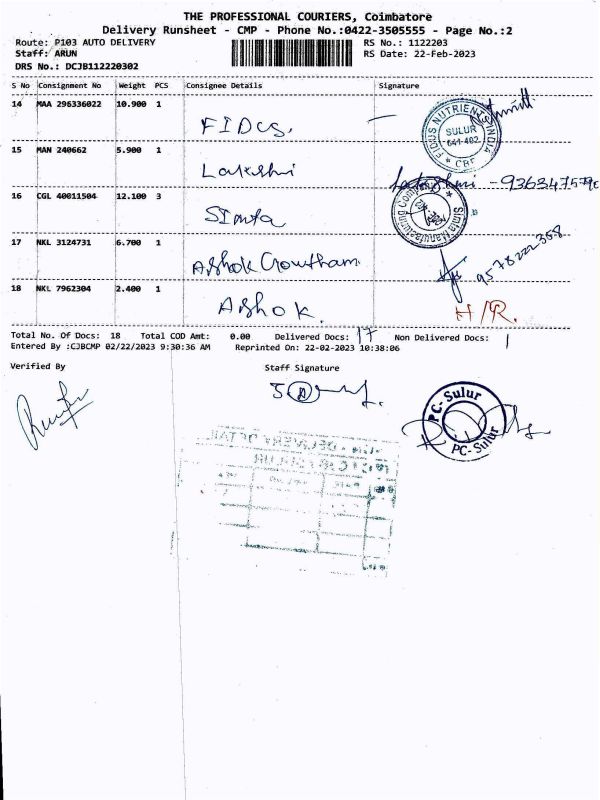 THE PROFESSIONAL COURIERS, Coimbatore
Delivery Runsheet - CMP - Phone No.:0422-3505555 - Page No.:2
Route: P103 AUTO DELIVERY RS No.: 1122203
Staff: ARUN RS Date: 22-Feb-2023
DRS No.: DCJB112220302
S No Consignment No Weight PCS Consignee Details Signature
14 MAA 296336022 10.900 1
FIDUS.
FIDUS NUTRIENTS INDIA
SULUR
641-402
CBE
15 MAN 240662 5.900 1
Lakshmi
Lakshmi
16 CGL 40011504 12.100 3
Simta
Simta Manufacturing Company
17 NKL 3124731 6.700 1
Ashok Gowtham
9578222358
18 NKL 7962304 2.400 1
Ashok.
H/R.
Total No. Of Docs: 18 Total COD Amt: 0.00 Delivered Docs: 17 Non Delivered Docs: 1
Entered By :CJBCMP 02/22/2023 9:30:36 AM Reprinted On: 22-02-2023 10:38:06
Verified By Staff Signature
PC-Sulur
PC-Sulur